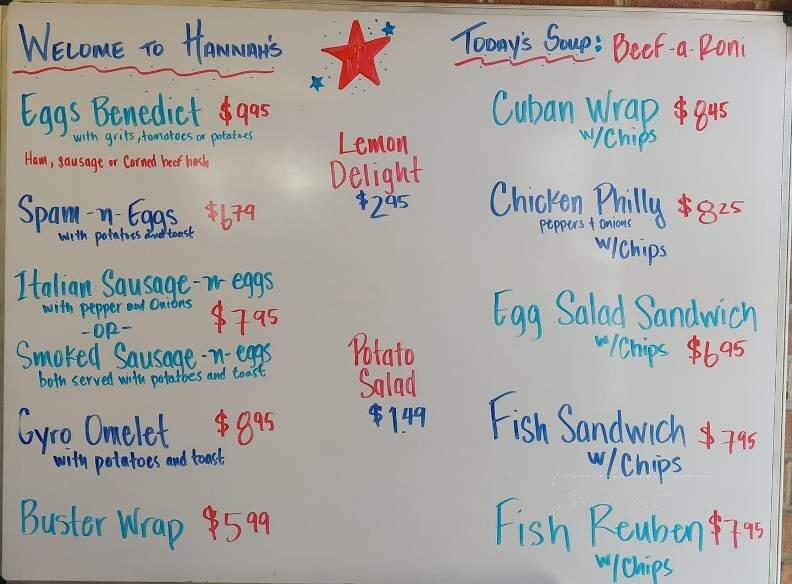 WELCOME TO HANNAH'S
Eggs Benedict $9.95
with grits, tomatoes or potatoes
Ham, sausage or Corned beef hash
Spam-n-Eggs $6.79
with potatoes and toast
Italian Sausage-n-eggs
with pepper and Onions
-OR- $7.95
Smoked Sausage-n-eggs
both served with potatoes and toast
Gyro Omelet $8.95
with potatoes and toast
Buster Wrap $5.99
Lemon
Delight
$2.95
Potato
Salad
$1.49
TODAY'S SOUP: Beef-a-Roni
Cuban Wrap $8.45
w/Chips
Chicken Philly $8.25
peppers + onions
w/Chips
Egg Salad Sandwich
w/Chips $6.95
Fish Sandwich $7.95
w/Chips
Fish Reuben $7.95
w/Chips